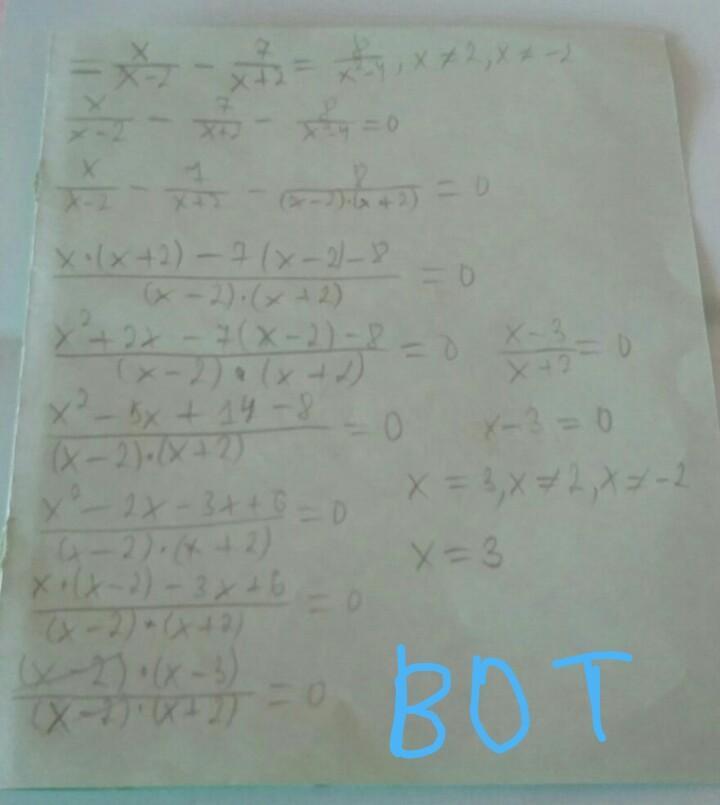 = x/(x-2) - 7/(x+2) = 8/(x²-4), x ≠ 2, x ≠ -2
x/(x-2) - 7/(x+2) - 8/(x²-4) = 0
x/(x-2) - 7/(x+2) - 8/((x-2)·(x+2)) = 0
(x·(x+2) - 7(x-2) - 8)/((x-2)·(x+2)) = 0
(x²+2x - 7(x-2) - 8)/((x-2)·(x+2)) = 0
(x² - 5x + 14 - 8)/((x-2)·(x+2)) = 0
(x² - 2x - 3x + 6)/((x-2)·(x+2)) = 0
(x·(x-2) - 3x + 6)/((x-2)·(x+2)) = 0
((x-2)·(x-3))/((x-2)·(x+2)) = 0
(x-3)/(x+2) = 0
x-3 = 0
x = 3, x ≠ 2, x ≠ -2
x = 3
BOT